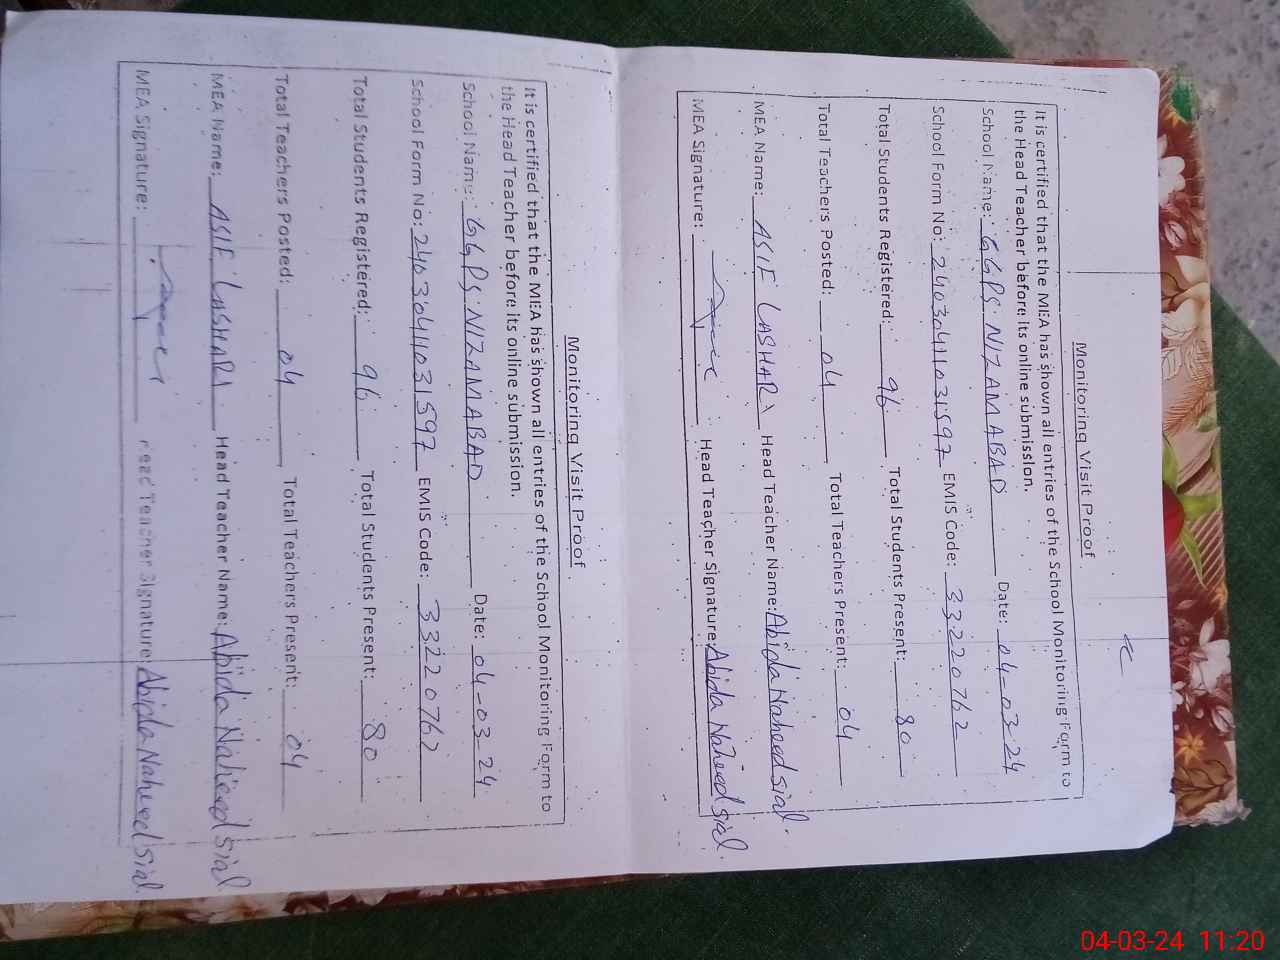 Monitoring Visit Proof
It is certified that the MEA has shown all entries of the School Monitoring Form to
the Head Teacher before its online submission.
School Name: GGPS NIZAMABAD Date: 04-03-24
School Form No: 24030411031597 EMIS Code: 33220762
Total Students Registered: 96 Total Students Present: 80
Total Teachers Posted: 04 Total Teachers Present: 04
MEA Name: ASIF LASHARI Head Teacher Name: Abida Naheed Sial.
MEA Signature: Head Teacher Signature: Abida Naheed Sial.
Monitoring Visit Proof
It is certified that the MEA has shown all entries of the School Monitoring Form to
the Head Teacher before its online submission.
School Name: GGPS NIZAMABAD Date: 04-03-24
School Form No: 24030411031597 EMIS Code: 33220762
Total Students Registered: 96 Total Students Present: 80
Total Teachers Posted: 04 Total Teachers Present: 04
MEA Name: ASIF LASHARI Head Teacher Name: Abida Naheed Sial
MEA Signature: Head Teacher Signature: Abida Naheed Sial.
04-03-24 11:20